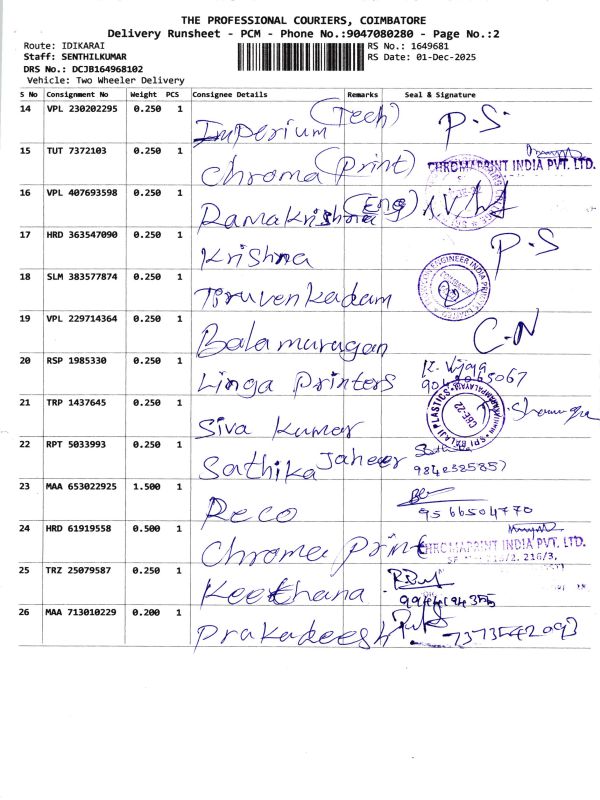 THE PROFESSIONAL COURIERS, COIMBATORE
Delivery Runsheet - PCM - Phone No.:9047080280 - Page No.:2
Route: IDIKARAI
RS No.: 1649681
Staff: SENTHILKUMAR
RS Date: 01-Dec-2025
DRS No.: DCJB164968102
Vehicle: Two Wheeler Delivery
S No Consignment No Weight PCS Consignee Details Remarks Seal & Signature
14 VPL 230202295 0.250 1 Imperium (Tech) P.S.
15 TUT 7372103 0.250 1 Chroma (Print) CHROMAPRINT INDIA PVT. LTD.
16 VPL 407693598 0.250 1 Ramakrishna (Eng)
17 HRD 363547090 0.250 1 Krishna P.S
18 SLM 383577874 0.250 1 Tiruvenkadam
19 VPL 229714364 0.250 1 Balamurugan C.N
20 RSP 1985330 0.250 1 Linga Printers K. Vijaya
21 TRP 1437645 0.250 1 Siva Kumar SRI BALAJI PLASTICS CBE-22
22 RPT 5033993 0.250 1 Sathika Jaheer
23 MAA 653022925 1.500 1 Reco 9566504770
24 HRD 61919558 0.500 1 Chroma Print CHROMAPRINT INDIA PVT. LTD.
25 TRZ 25079587 0.250 1 Keethana
26 MAA 713010229 0.200 1 Prakadeesh 7373542093